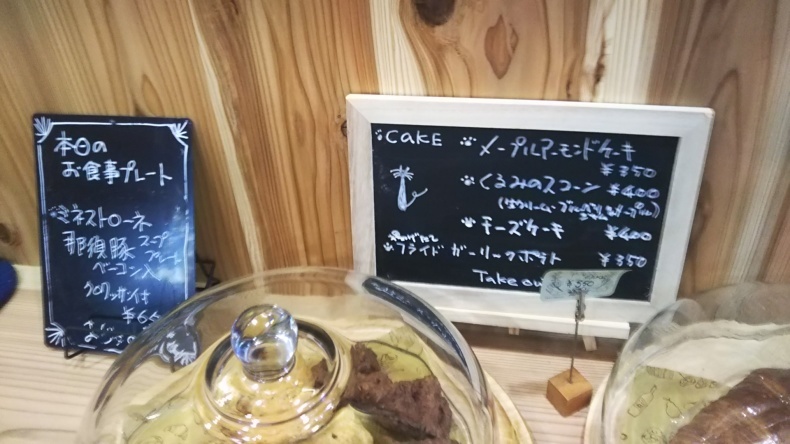 本日の
お食事プレート
ミネストローネ
スープ
那須豚 プレート
ベーコン入
クロワッサン付
CAKE
メープルアーモンドケーキ
¥350
くるみのスコーン ¥400
チーズケーキ ¥400
フライド・ガーリックポテト ¥350